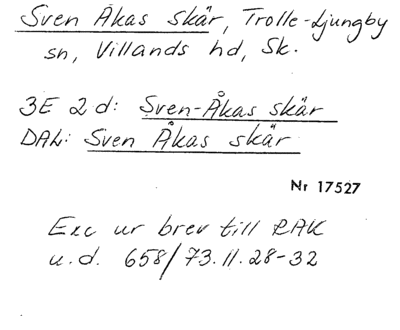 Sven Åkas skär, Trolle-Ljungby
sn, Villands hd, Sk.
3E 2 d: Sven-Åkas skär
DAL: Sven Åkas skär
Nr 17527
Exc ur brev till RAK
u.d. 658/73.11.28-32